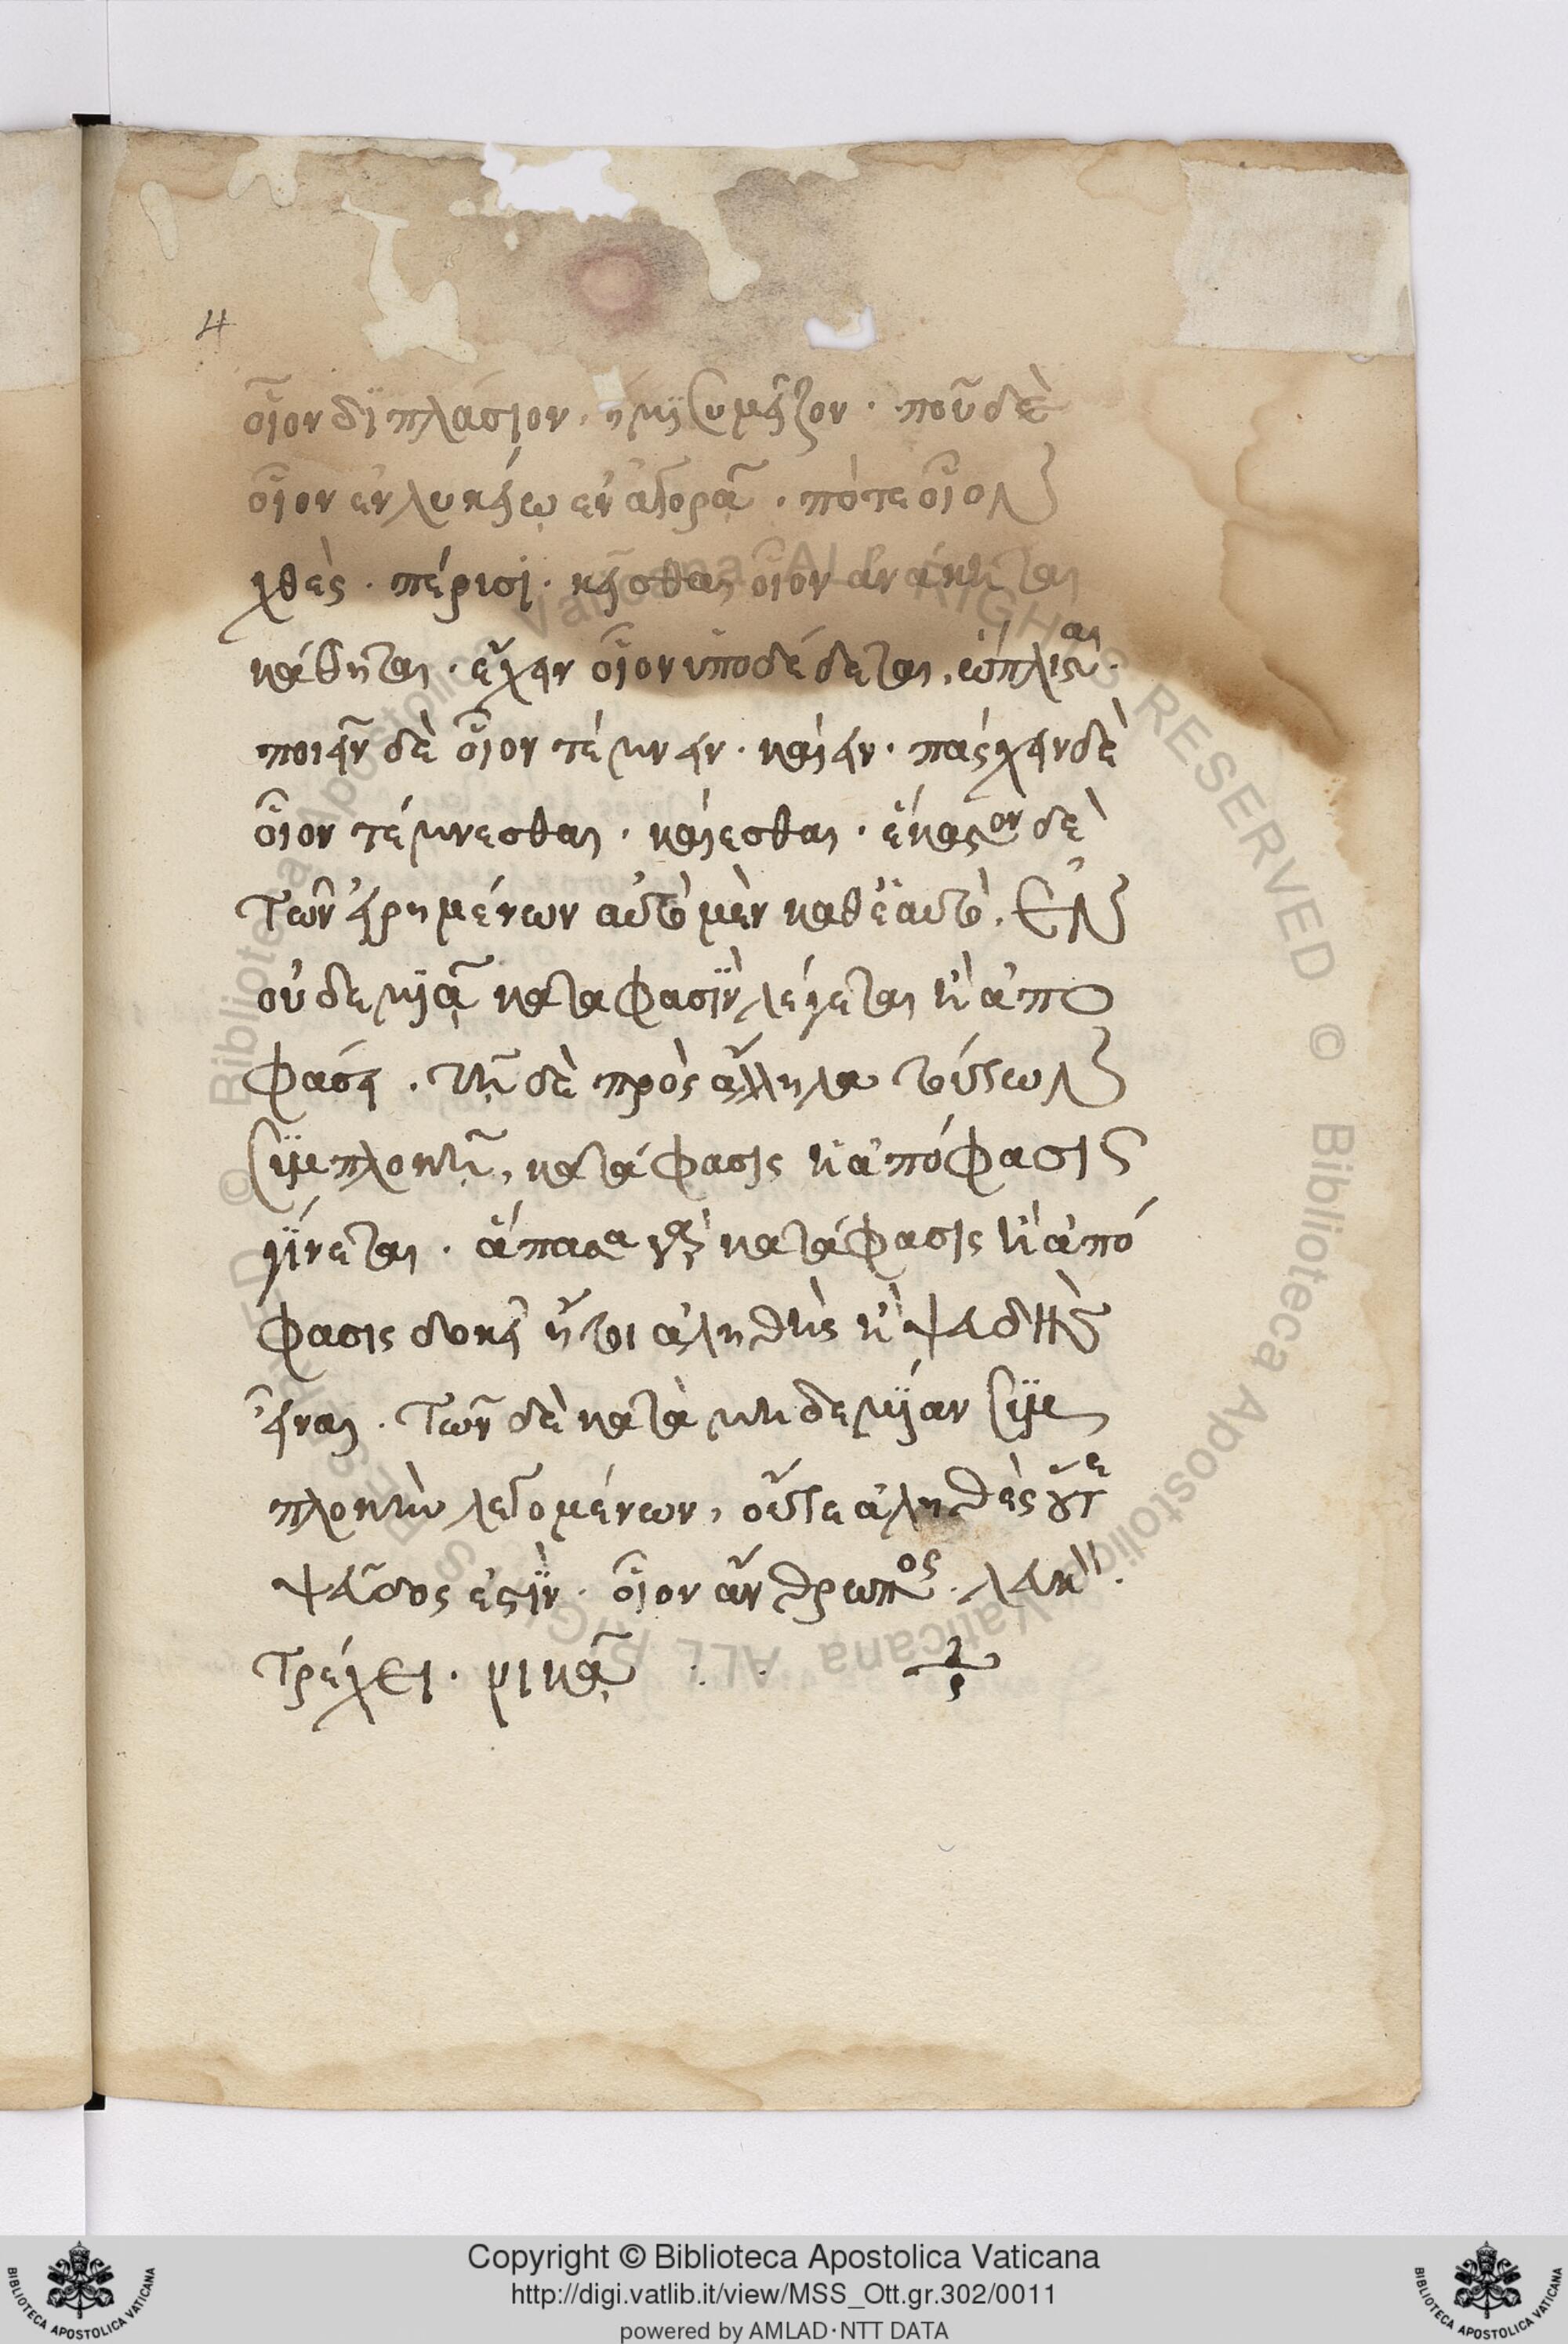 4
οἷον διπλάσιον, ἥμισυ μεῖζον · ποῦ δὲ
οἷον ἐν λυκείῳ ἐν ἀγορᾷ · πότε οἷον
χθὲς · πέρισι · κεῖσθαι οἷον ἀνάκειται
κάθηται · ἔχειν οἷον ὑποδέδεται, ὥπλισται ·
ποιεῖν δὲ οἷον τέμνειν · καίειν · πάσχειν δὲ
οἷον τέμνεσθαι · καίεσθαι · ἕκαστον δὲ
τῶν εἰρημένων αὐτὸ μὲν καθ ἑαυτὸ, ἐν
οὐδεμιᾷ καταφάσιν λέγεται κ̀ ἀπο
φάσει · τῇ δὲ πρὸς ἄλληλα τούτων
συμπλοκῇ, κατάφασις κ̀ ἀπόφασις
γίνεται · ἅπασα γὰρ κατάφασις κ̀ ἀπό
φασις δοκεῖ ἤτοι ἀληθὴς κ̀ ψευδὴς
εἶναι · τῶν δὲ κατὰ μηδεμίαν συμ
πλοκὴν λεγομένων, οὔτε ἀληθὲς οὔτε
ψεῦδος ἐστὶν · οἷον ἄνθρωπος · λευκὸν ·
τρέχει · νικᾷ
Copyright © Biblioteca Apostolica Vaticana
http://digi.vatlib.it/view/MSS_Ott.gr.302/0011
powered by AMLAD·NTT DATA
BIBLIOTECA APOSTOLICA VATICANA
BIBLIOTECA APOSTOLICA VATICANA